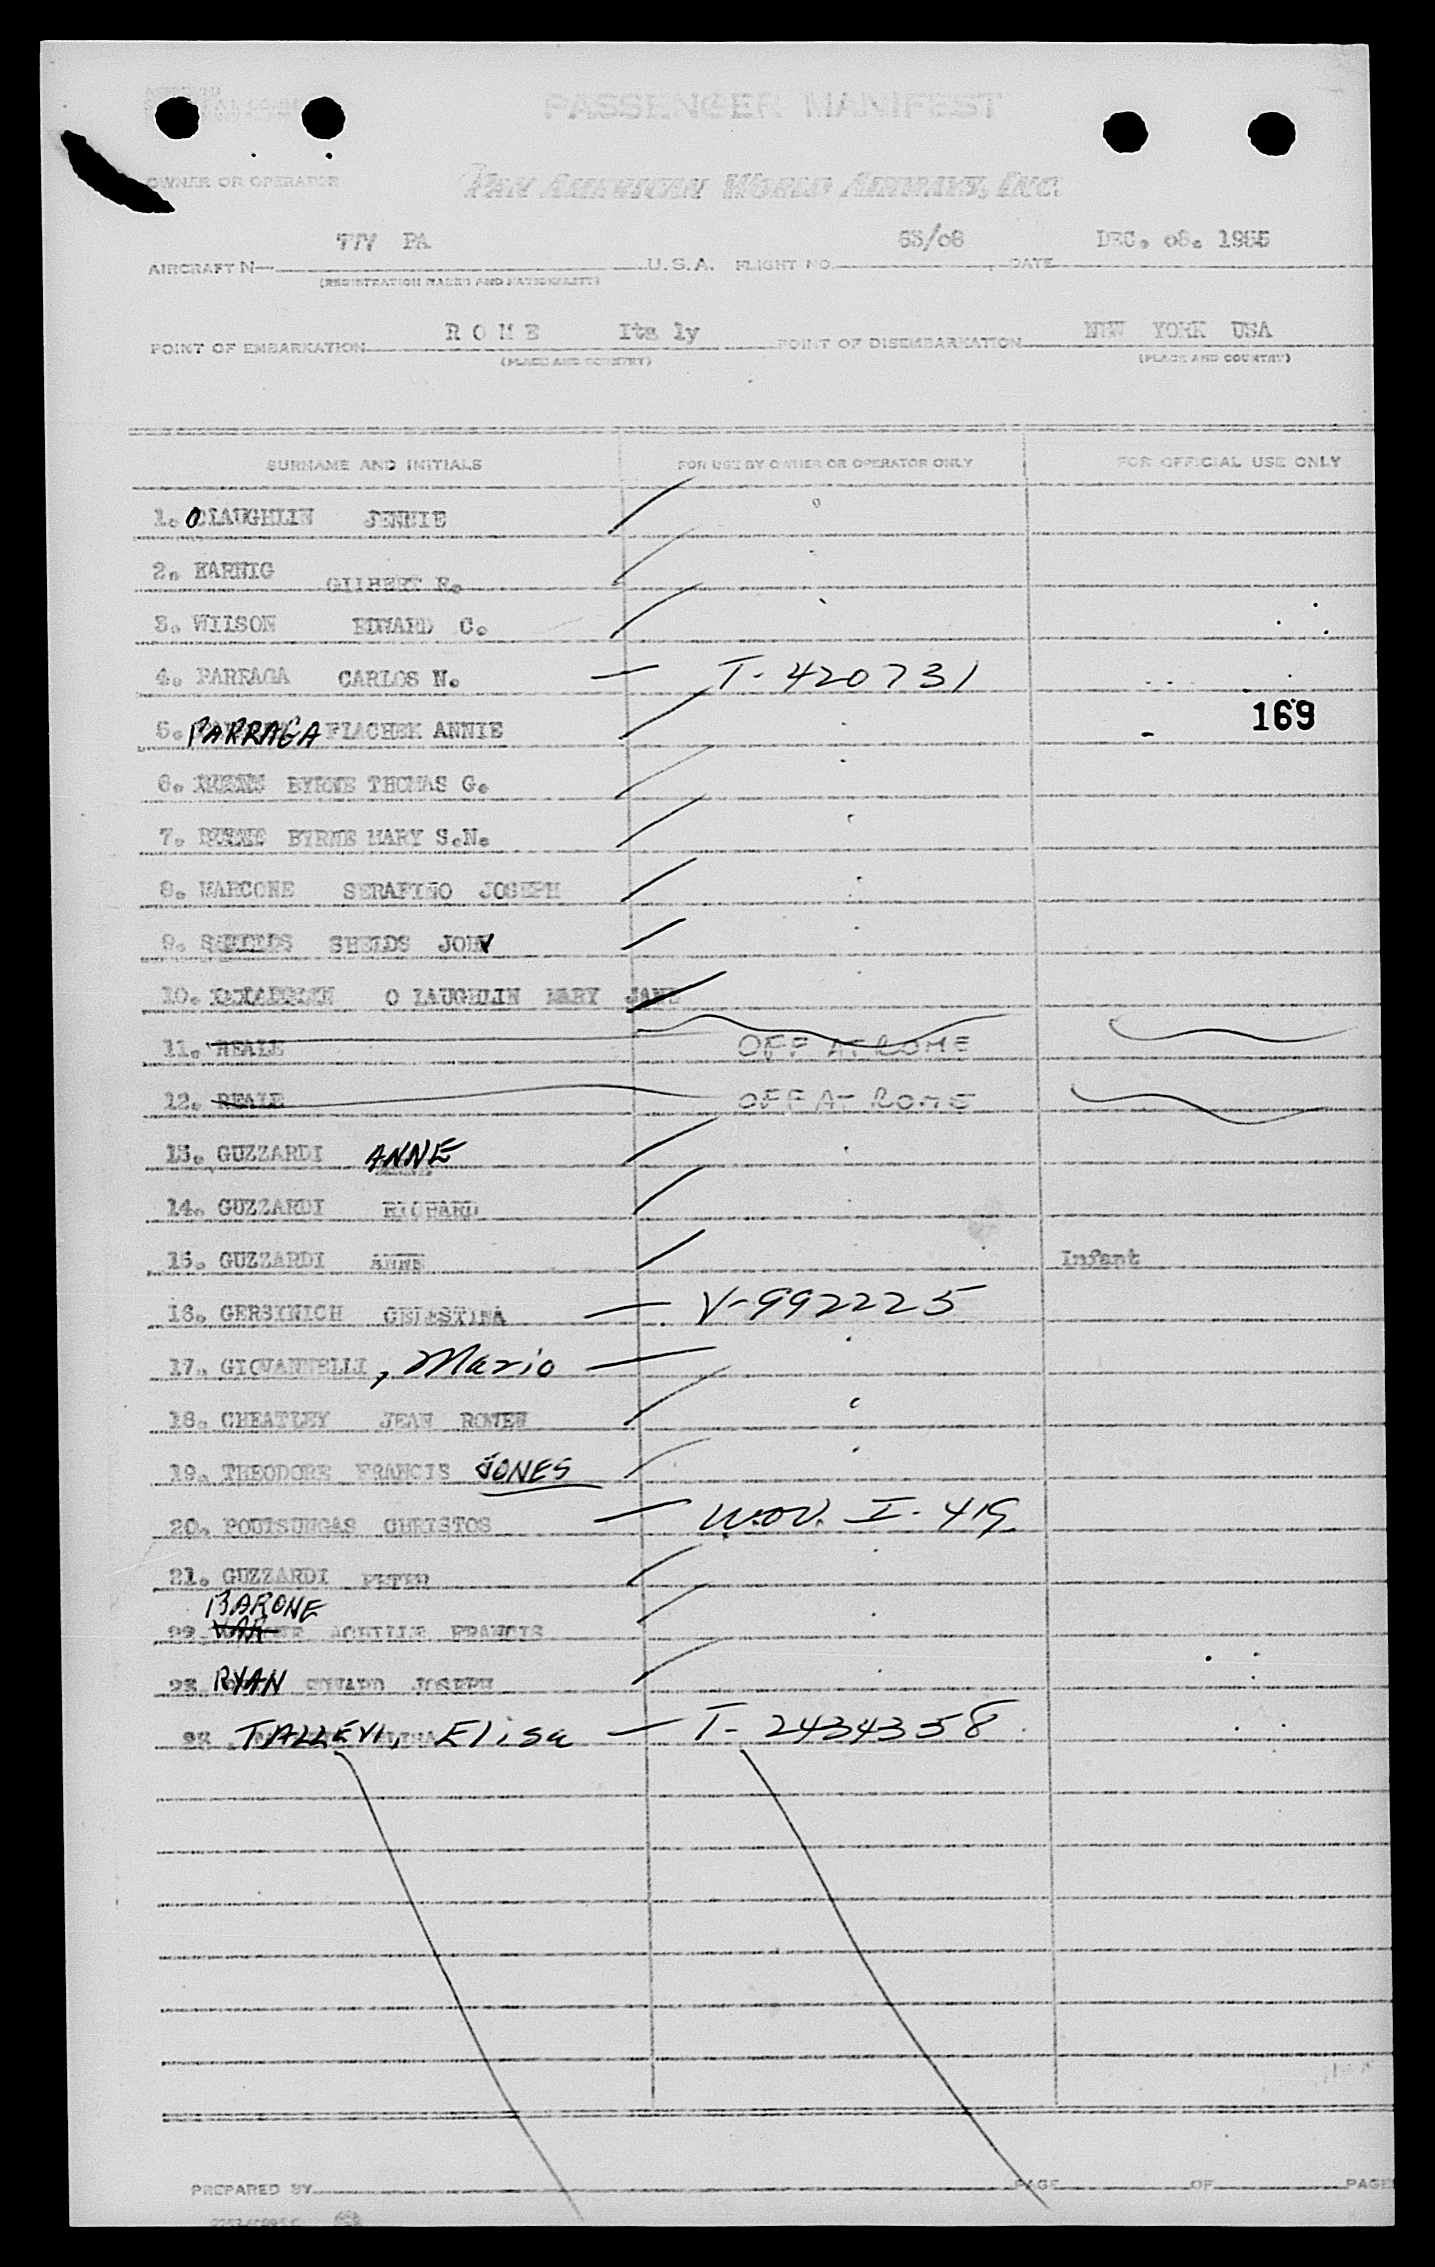 PASSENGER MANIFEST
OWNER OR OPERATOR PAN AMERICAN WORLD AIRWAYS, INC.
77V PA 63/08 DEC. 08. 1955
AIRCRAFT N U.S.A. FLIGHT NO. DATE
(REGISTRATION MARKS AND NATIONALITY)
R O M E Ita ly NEW YORK USA
POINT OF EMBARKATION POINT OF DISEMBARKATION
(PLACE AND COUNTRY) (PLACE AND COUNTRY)
SURNAME AND INITIALS FOR USE BY OWNER OR OPERATOR ONLY FOR OFFICIAL USE ONLY
1. OLAUGHLIN JENNIE
2. HARNIG GILBERT
3. WILSON EDWARD C.
4. PARRAGA CARLOS N. — T-420731
169
5. PARRAGA FIACHEK ANNIE
6. BYRNE THOMAS G.
7. BYRNE MARY S.N.
8. MARCONE SERAFINO JOSEPH
9. SHEIDS JOHN
10. O LAUGHLIN MARY JANE
11. REALE OFF AT ROME
12. REALE OFF AT ROME
13. GUZZARDI ANNE
14. GUZZARDI RICHARD
15. GUZZARDI ANNE Infant
16. GERSINICH CELESTINA — V-992225
17. GIOVANNELLI, Mario —
18. CHEATLEY JEAN ROWEN
19. THEODORE FRANCIS JONES
20. POUTSUNGAS CHRISTOS — W.O.V. I-419
21. GUZZARDI PETER
BARONE
22. ACHILLE FRANCIS
23 RYAN EDWARD JOSEPH
TALLEVI, Elisa — T-2434358
PREPARED BY PAGE OF PAGES